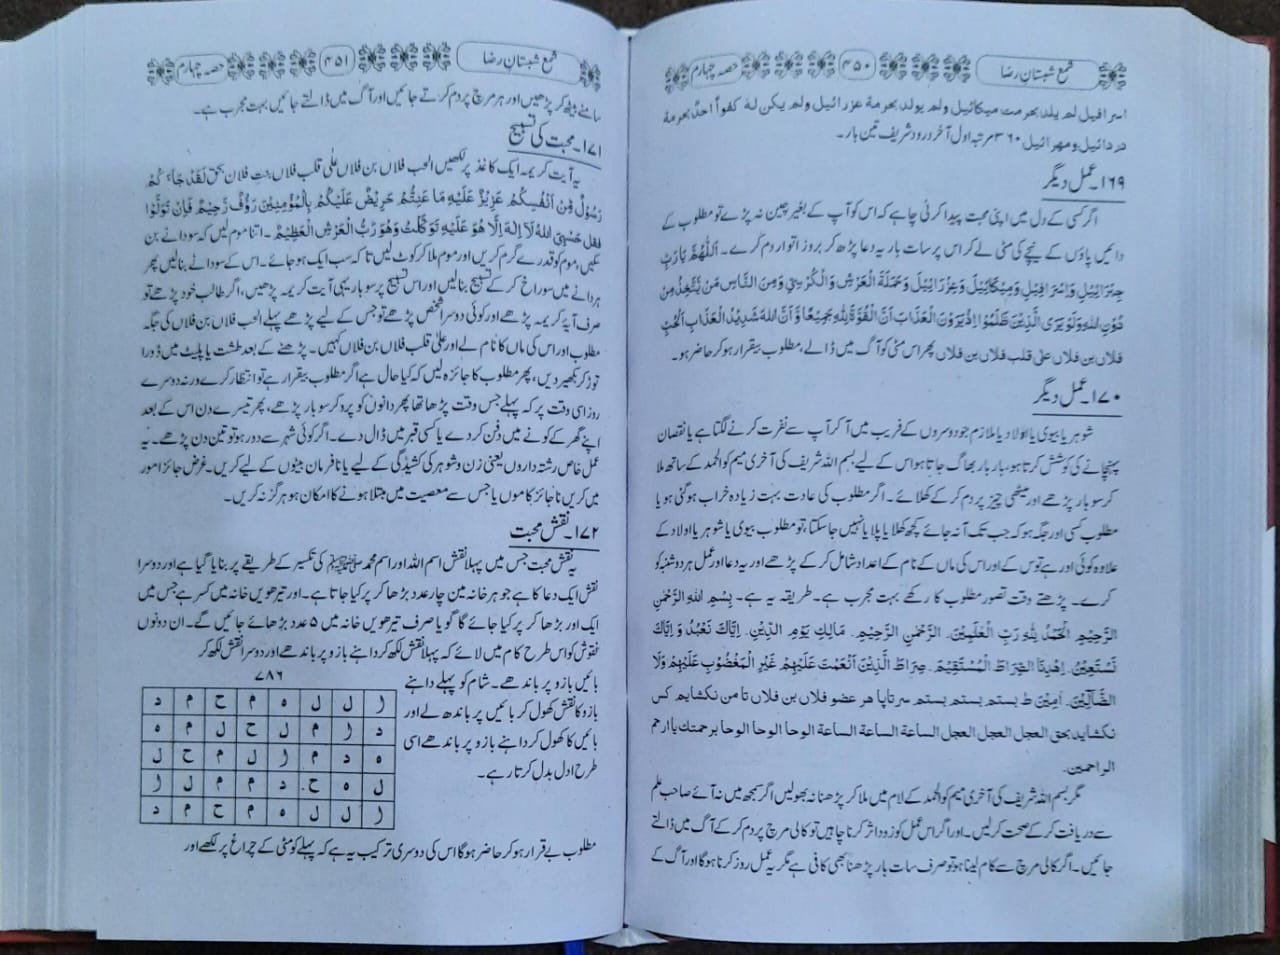 شمع شبستانِ رضا ۴۵۰ حصہ چہارم
اسرافیل لم یلد بحرمت میکائیل ولم یولد بحرمۃ عزرائیل ولم یکن لہ کفواً احدٌ بحرمۃ
دردائیل ومهرائیل ۳۶۰ مرتبہ اول آخر درود شریف تین بار۔
۱۶۹۔ عمل دیگر
اگر کسی کے دل میں اپنی محبت پیدا کرنی چاہے کہ اس کو آپ کے بغیر چین نہ پڑے تو مطلوب کے
دائیں پاؤں کے نیچے کی مٹی لے کر اس پر سات بار یہ دعا پڑھ کر بروز اتوار دم کرے۔ اَللّٰهُمَّ یَارَبِّ
جِبْرَائِیْلَ وَاِسْرَافِیْلَ وَمِیْکَائِیْلَ وَعِزْرَائِیْلَ وَحَمَلَةَ الْعَرْشِ وَالْکُرْسِیِّ وَمِنَ النَّاسِ مَنْ یَّتَّخِذُ مِنْ
دُوْنِ اللهِ وَلَوْ یَرَی الَّذِیْنَ ظَلَمُوْا اِذْ یَرَوْنَ الْعَذَابَ اَنَّ الْقُوَّةَ لِلّٰهِ جَمِیْعًا وَّ اَنَّ اللهَ شَدِیْدُ الْعَذَابِ اَلْحُبّ
فلاں بن فلاں علی قلب فلاں بن فلاں پھر اس مٹی کو آگ میں ڈالے، مطلوب بیقرار ہو کر حاضر ہو۔
۱۷۰۔ عمل دیگر
شوہر یا بیوی یا اولاد یا ملازم جو دوسروں کے فریب میں آ کر آپ سے نفرت کرنے لگتا ہے یا نقصان
پہنچانے کی کوشش کرتا ہو، بار بار بھاگ جاتا ہو اس کے لیے بسم اللہ شریف کی آخری میم کو الحمد کے ساتھ ملا
کر سو بار پڑھے اور میٹھی چیز پر دم کر کے کھلائے۔ اگر مطلوب کی عادت بہت زیادہ خراب ہو گئی ہو یا
مطلوب کسی اور جگہ ہو کہ جب تک آ نہ جائے کچھ کھلایا پلایا نہیں جا سکتا، تو مطلوب بیوی یا شوہر یا اولاد کے
علاوہ کوئی اور ہے تو س کے اور اس کی ماں کے نام کے اعداد شامل کر کے پڑھے اور یہ دعا اور عمل ہر دو شنبہ کو
کرے۔ پڑھتے وقت تصور مطلوب کا رکھے بہت مجرب ہے۔ طریقہ یہ ہے۔ بِسْمِ اللهِ الرَّحْمٰنِ
الرَّحِیْمِ الْحَمْدُ لِلّٰهِ رَبِّ الْعٰلَمِیْنَ۔ الرَّحْمٰنِ الرَّحِیْمِ۔ مَالِكِ یَوْمِ الدِّیْنِ۔ اِیَّاكَ نَعْبُدُ وَ اِیَّاكَ
نَسْتَعِیْنُ۔ اِهْدِنَا الصِّرَاطَ الْمُسْتَقِیْمَ۔ صِرَاطَ الَّذِیْنَ اَنْعَمْتَ عَلَیْهِمْ غَیْرِ الْمَغْضُوْبِ عَلَیْهِمْ وَلَا
الضَّآلِّیْنَ۔ اٰمِیْن ط بستم بستم بستم سر تاپا هر عضو فلاں بن فلاں تا من نکشایم کس
نکشاید بحق العجل العجل العجل الساعة الساعة الساعة الوحا الوحا الوحا برحمتك یا ارحم
الراحمین۔
مگر بسم اللہ شریف کی آخری میم کو الحمد کے لام میں ملا کر پڑھنا نہ بھولیں اگر سمجھ میں نہ آئے صاحب علم
سے دریافت کر کے صحت کر لیں۔ اور اگر اس عمل کو زود اثر کرنا چاہیں تو کالی مرچ پر دم کر کے آگ میں ڈالتے
جائیں۔ اگر کالی مرچ سے کام لینا ہو تو صرف سات بار پڑھنا بھی کافی ہے مگر یہ عمل روز کرنا ہوگا اور آگ کے
شمع شبستانِ رضا ۴۵۱ حصہ چہارم
سامنے بیٹھ کر پڑھیں اور ہر مرچ پر دم کرتے جائیں اور آگ میں ڈالتے جائیں بہت مجرب ہے۔
۱۷۱۔ محبت کی تسبیح
یہ آیت کریمہ ایک کاغذ پر لکھیں الحب فلاں بن فلاں علٰی قلب فلاں بنت فلان بحق لَقَدْ جَاءَ كُمْ
رَسُوْلٌ مِّنْ اَنْفُسِکُمْ عَزِیْزٌ عَلَیْهِ مَا عَنِتُّمْ حَرِیْصٌ عَلَیْکُمْ بِالْمُؤْمِنِیْنَ رَؤُفٌ رَّحِیْمٌ فَاِنْ تَوَلَّوْا
فَقُلْ حَسْبِیَ اللهُ لَآ اِلٰهَ اِلَّا هُوَ عَلَیْهِ تَوَکَّلْتُ وَهُوَ رَبُّ الْعَرْشِ الْعَظِیْمِ۔ اتنا موم لیں کہ سو دانے بن
سکیں، موم کو قدرے گرم کریں اور موم ملا کر کوٹ لیں تاکہ سب ایک ہو جائے۔ اس کے سو دانے بنالیں پھر
ہر دانے میں سوراخ کر کے تسبیح بنالیں اور اس تسبیح پر سو بار یہی آیت کریمہ پڑھیں، اگر طالب خود پڑھے تو
صرف آیۂ کریمہ پڑھے اور کوئی دوسرا شخص پڑھے تو جس کے لیے پڑھے پہلے الحب فلاں بن فلاں کی جگہ
مطلوب اور اس کی ماں کا نام لے اور علٰی قلب فلاں بن فلاں کہیں۔ پڑھنے کے بعد طشت یا پلیٹ میں ڈورا
توڑ کر بکھیر دیں، پھر مطلوب کا جائزہ لیں کہ کیا حال ہے اگر مطلوب بیقرار ہے تو انتظار کرے ورنہ دوسرے
روز اسی وقت پر کہ پہلے جس وقت پڑھا تھا پھر دانوں کو پرو کر سو بار پڑھے، پھر تیسرے دن اس کے بعد
اپنے گھر کے کونے میں دفن کر دے یا کسی قبر میں ڈال دے۔ اگر کوئی شہر سے دور ہو تو تین دن پڑھے۔ یہ
عمل خاص رشتہ داروں یعنی زن و شوہر کی کشیدگی کے لیے یا نافرمان بیٹوں کے لیے کریں۔ غرض جائز امور
میں کریں ناجائز کاموں یا جس سے معصیت میں مبتلا ہونے کا امکان ہو ہرگز نہ کریں۔
۱۷۲۔ نقش محبت
یہ نقش محبت جس میں پہلا نقش اسم اللہ اور اسم محمد ﷺ کی تکسیر کے طریقے پر بنایا گیا ہے اور دوسرا
نقش ایک دعا کا ہے جو ہر خانہ میں چار عدد بڑھا کر پر کیا جاتا ہے۔ اور تیرھویں خانہ میں کسر ہے جس میں
ایک اور بڑھا کر پر کیا جائے گا گویا صرف تیرھویں خانہ میں ۵ عدد بڑھائے جائیں گے۔ ان دونوں
نقوش کو اس طرح کام میں لائے کہ پہلا نقش لکھ کر داہنے بازو پر باندھے اور دوسرا نقش لکھ کر
بائیں بازو پر باندھے۔ شام کو پہلے داہنے
بازو کا نقش کھول کر بائیں پر باندھ لے اور
بائیں کا کھول کر داہنے بازو پر باندھے اسی
طرح ادل بدل کرتا رہے۔
۷۸۶
ا ل ل ہ م ح م د
د ا م ل ح ل م ہ
ہ د م ا ل م ح ل
ل ہ ح د م م ل ا
ا ل ل ہ م ح م د
مطلوب بے قرار ہو کر حاضر ہوگا اس کی دوسری ترکیب یہ ہے کہ پہلے کو مٹی کے چراغ پر لکھے اور